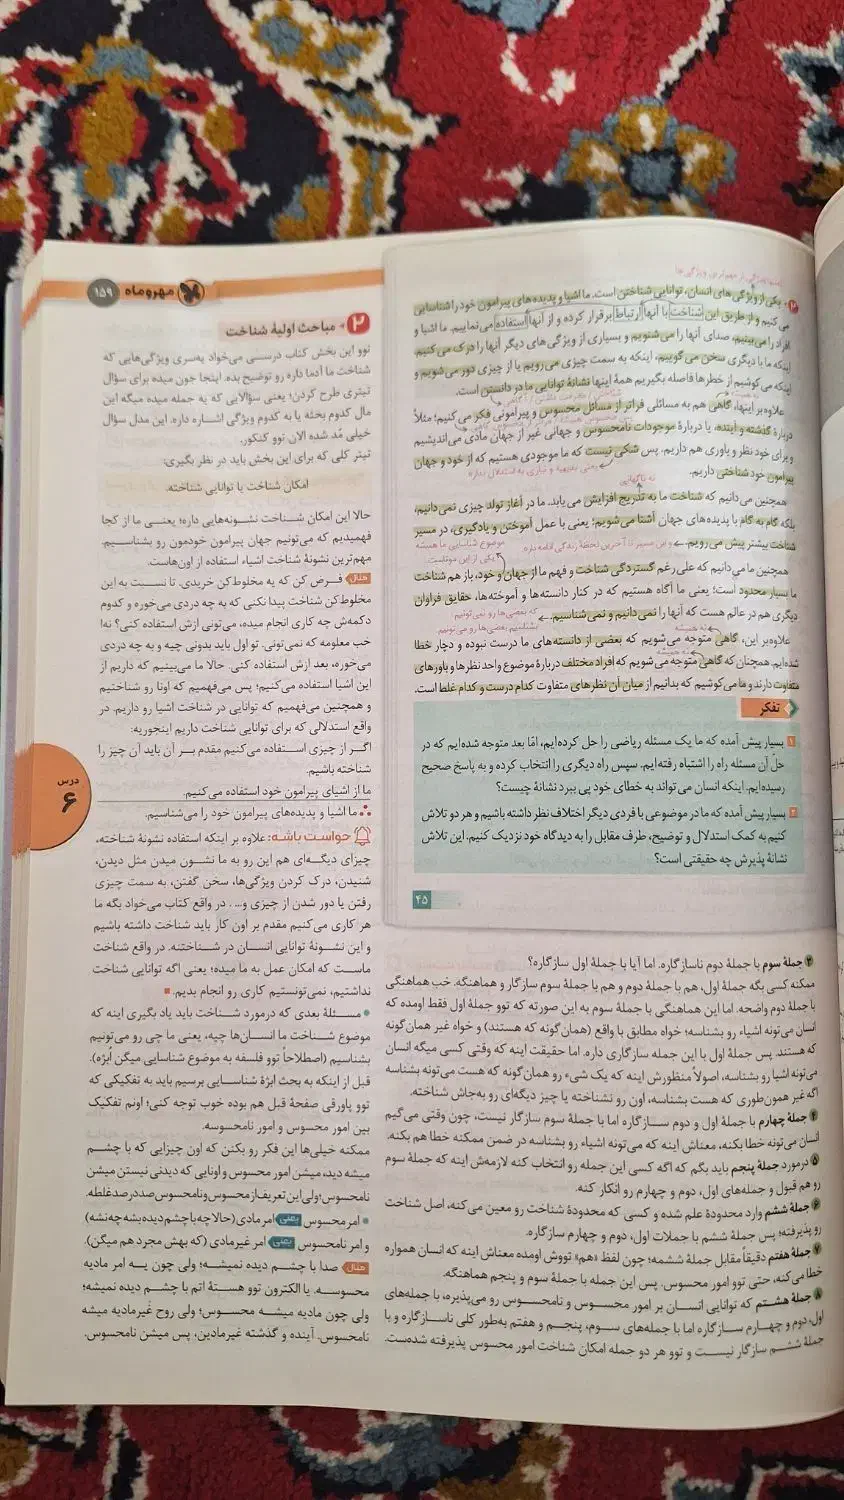 مهروماه ۱۵۹
۲ • یکی از ویژگی های انسان، توانایی شناختن است. ما اشیا و پدیده‌های پیرامون خود را شناسایی
می کنیم و از طریق این شناخت با آنها ارتباط برقرار کرده و از آنها استفاده می نماییم. ما اشیا و
افراد را می‌بینیم، صدای آنها را می‌شنویم و بسیاری از ویژگی‌های دیگر آنها را درک می‌کنیم.
اینکه ما با دیگری سخن می‌گوییم، اینکه به سمت چیزی می‌رویم یا از چیزی دور می‌شویم و
اینکه می کوشیم از خطرها فاصله بگیریم همۀ اینها نشانۀ توانایی ما در دانستن است.
علاوه بر اینها، گاهی هم به مسائلی فراتر از مسائل محسوس و پیرامونی فکر می‌کنیم؛ مثلاً
دربارۀ گذشته و آینده، یا دربارۀ موجودات نامحسوس و جهانی غیر از جهان مادّی می‌اندیشیم
و برای خود نظر و باوری هم داریم. پس شکی نیست که ما موجودی هستیم که از خود و جهان
یعنی بدیهیه و نیازی به استدلال نداره
پیرامون خود شناختی داریم.
نه ناگهانی
همچنین می‌دانیم که شناخت ما به تدریج افزایش می‌یابد. ما در آغاز تولد چیزی نمی‌دانیم،
بلکه گام به گام با پدیده‌های جهان آشنا می‌شویم؛ یعنی با عمل آموختن و یادگیری، در مسیر
شناخت بیشتر پیش می‌رویم. و این مسیر تا آخرین لحظۀ زندگی ادامه داره
موضوع شناسایی ما همیشه
یکی از این موناست.
همچنین ما می‌دانیم که علی رغم گستردگی شناخت و فهم ما از جهان و خود، باز هم شناخت
ما بسیار محدود است؛ یعنی ما آگاه هستیم که در کنار دانسته‌ها و آموخته‌ها، حقایق فراوان
دیگری هم در عالم هست که آنها را نمی‌دانیم و نمی‌شناسیم.
که بعضی‌ها رو نمی‌تونیم
بشناسیم بعضی‌ها رو می‌تونیم
نه همیشه
علاوه بر این، گاهی متوجه می‌شویم که بعضی از دانسته‌های ما درست نبوده و دچار خطا
نه همیشه
شده‌ایم. همچنان که گاهی متوجه می‌شویم که افراد مختلف دربارۀ موضوع واحد نظرها و باورهای
متفاوت دارند و ما می‌کوشیم که بدانیم از میان آن نظرهای متفاوت کدام درست و کدام غلط است.
تفکر
۱ بسیار پیش آمده که ما یک مسئله ریاضی را حل کرده‌ایم، امّا بعد متوجه شده‌ایم که در
حلّ آن مسئله راه را اشتباه رفته‌ایم. سپس راه دیگری را انتخاب کرده و به پاسخ صحیح
رسیده‌ایم. اینکه انسان می‌تواند به خطای خود پی ببرد نشانۀ چیست؟
۲ بسیار پیش آمده که ما در موضوعی با فردی دیگر اختلاف نظر داشته باشیم و هر دو تلاش
کنیم به کمک استدلال و توضیح، طرف مقابل را به دیدگاه خود نزدیک کنیم. این تلاش
نشانۀ پذیرش چه حقیقتی است؟
۴۵
۳ جملۀ سوم با جملۀ دوم ناسازگاره. اما آیا با جملۀ اول سازگاره؟
ممکنه کسی بگه جملۀ اول، هم با جملۀ دوم و هم با جملۀ سوم سازگار و هماهنگه. خب هماهنگی
با جملۀ دوم واضحه. اما این هماهنگی با جملۀ سوم به این صورته که توو جملۀ اول فقط اومده که
انسان می‌تونه اشیاء رو بشناسه؛ خواه مطابق با واقع (همان‌گونه که هستند) و خواه غیر همان‌گونه
که هستند. پس جملۀ اول با این جمله سازگاری داره. اما حقیقت اینه که وقتی کسی میگه انسان
می‌تونه اشیا رو بشناسه، اصولاً منظورش اینه که یک شیء رو همان‌گونه که هست می‌تونه بشناسه
اگه غیر همون‌طوری که هست بشناسه، اون رو نشناخته یا چیز دیگه‌ای رو به‌جاش شناخته.
۴ جملۀ چهارم با جملۀ اول و دوم سازگاره اما با جملۀ سوم سازگار نیست، چون وقتی می‌گیم
انسان می‌تونه خطا بکنه، معناش اینه که می‌تونه اشیاء رو بشناسه در ضمن ممکنه خطا هم بکنه.
۵ درمورد جملۀ پنجم باید بگم که اگه کسی این جمله رو انتخاب کنه لازمه‌ش اینه که جملۀ سوم
رو هم قبول و جمله‌های اول، دوم و چهارم رو انکار کنه.
۶ جملۀ ششم وارد محدودۀ علم شده و کسی که محدودۀ شناخت رو معین می‌کنه، اصل شناخت
رو پذیرفته؛ پس جملۀ ششم با جملات اول، دوم و چهارم سازگاره.
۷ جملۀ هفتم دقیقاً مقابل جملۀ ششمه؛ چون لفظ «هم» تووش اومده معناش اینه که انسان همواره
خطا می‌کنه، حتی توو امور محسوس. پس این جمله با جملۀ سوم و پنجم هماهنگه.
۸ جملۀ هشتم که توانایی انسان بر امور محسوس و نامحسوس رو می‌پذیره، با جمله‌های
اول، دوم و چهارم سازگاره اما با جمله‌های سوم، پنجم و هفتم به‌طور کلی ناسازگاره و با
جملۀ ششم سازگار نیست و توو هر دو جمله امکان شناخت امور محسوس پذیرفته شده‌ست.
۲ • مباحث اولیۀ شناخت
توو این بخش کتاب درسی می‌خواد یه‌سری ویژگی‌هایی که
شناخت ما آدما داره رو توضیح بده. اینجا جون میده برای سؤال
تیتری طرح کردن؛ یعنی سؤالایی که یه جمله میده میگه این
مال کدوم بحثه یا به کدوم ویژگی اشاره داره. این مدل سؤال
خیلی مُد شده الان توو کنکور.
تیتر کلی که برای این بخش باید در نظر بگیری:
امکان شناخت یا توانایی شناخته.
حالا این امکان شناخت نشونه‌هایی داره؛ یعنی ما از کجا
فهمیدیم که می‌تونیم جهان پیرامون خودمون رو بشناسیم.
مهم‌ترین نشونۀ شناخت اشیاء استفاده از اون‌هاست.
مثال فرض کن که یه مخلوط‌کن خریدی. تا نسبت به این
مخلوط‌کن شناخت پیدا نکنی که به چه دردی می‌خوره و کدوم
دکمه‌ش چه کاری انجام میده، می‌تونی ازش استفاده کنی؟ نه!
خب معلومه که نمی‌تونی. تو اول باید بدونی چیه و به چه دردی
می‌خوره، بعد ازش استفاده کنی. حالا ما می‌بینیم که داریم از
این اشیا استفاده می‌کنیم؛ پس می‌فهمیم که اونا رو شناختیم
و همچنین می‌فهمیم که توانایی در شناخت اشیا رو داریم. در
واقع استدلالی که برای توانایی شناخت داریم اینجوریه:
اگر از چیزی استفاده می‌کنیم مقدم بر آن باید آن چیز را
شناخته باشیم.
ما از اشیای پیرامون خود استفاده می‌کنیم.
∴ ما اشیا و پدیده‌های پیرامون خود را می‌شناسیم.
حواست باشه: علاوه بر اینکه استفاده نشونۀ شناخته،
چیزای دیگه‌ای هم این رو به ما نشون میدن مثل دیدن،
شنیدن، درک کردن ویژگی‌ها، سخن گفتن، به سمت چیزی
رفتن یا دور شدن از چیزی و.... در واقع کتاب می‌خواد بگه ما
هر کاری می‌کنیم مقدم بر اون کار باید شناخت داشته باشیم
و این نشونۀ توانایی انسان در شناختنه. در واقع شناخت
ماست که امکان عمل به ما میده؛ یعنی اگه توانایی شناخت
نداشتیم، نمی‌تونستیم کاری رو انجام بدیم.
• مسئلۀ بعدی که درمورد شناخت باید یاد بگیری اینه که
موضوع شناخت ما انسان‌ها چیه، یعنی ما چی رو می‌تونیم
بشناسیم (اصطلاحاً توو فلسفه به موضوع شناسایی میگن اُبژه).
قبل از اینکه به بحث ابژۀ شناسایی برسیم باید به تفکیکی که
توو پاورقی صفحۀ قبل هم بوده خوب توجه کنی؛ اونم تفکیک
بین امور محسوس و امور نامحسوسه.
ممکنه خیلی‌ها این فکر رو بکنن که اون چیزایی که با چشم
میشه دید، میشن امور محسوس و اونایی که دیدنی نیستن میشن
نامحسوس؛ ولی این تعریف از محسوس و نامحسوس صد در صد غلطه.
• امر محسوس یعنی امر مادی (حالا چه با چشم دیده بشه چه نشه)
و امر نامحسوس یعنی امر غیرمادی (که بهش مجرد هم میگن).
مثال صدا با چشم دیده نمیشه؛ ولی چون یه امر مادیه
محسوسه. یا الکترون توو هستۀ اتم با چشم دیده نمیشه؛
ولی چون مادیه میشه محسوس؛ ولی روح غیرمادیه میشه
نامحسوس. آینده و گذشته غیرمادین، پس میشن نامحسوس.
درس
۶